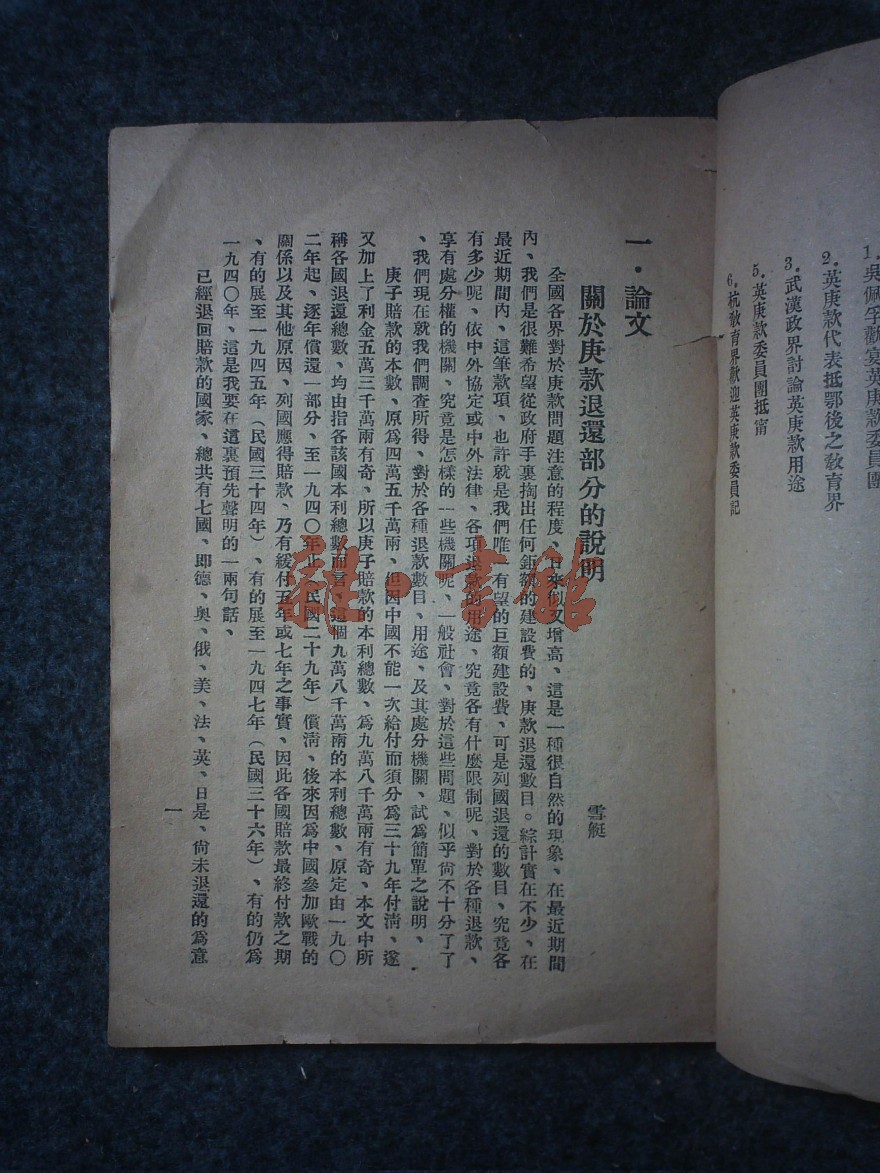 1.吳佩孚歡宴英庚款委員團
2.英庚款代表抵鄂後之教育界
3.武漢政界討論英庚款用途
5.英庚款委員團抵甯
6.杭教育界歡迎英庚款委員記
一・論文
關於庚款退還部分的說明
雪艇
全國各界對於庚款問題注意的程度、日來似又增高、這是一種很自然的現象、在最近期間
內、我們是很難希望從政府手裏掏出任何鉅額的建設費的、庚款退還數目。綜計實在不少、在
最近期間內、這筆款項、也許就是我們唯一有望的巨額建設費、可是列國退還的數目、究竟各
有多少呢、依中外協定或中外法律、各項退款的用途、究竟各有什麼限制呢、對於各種退款、
享有處分權的機關、究竟是怎樣的一些機關呢、一般社會、對於這些問題、似乎尚不十分了了
、我們現在就我們調查所得、對於各種退款數目、用途、及其處分機關、試爲簡單之說明、
庚子賠款的本數、原爲四萬五千萬兩、但因中國不能一次給付而須分爲三十九年付淸、遂
又加上了利金五萬三千萬兩有奇、所以庚子賠款的本利總數、爲九萬八千萬兩有奇、本文中所
稱各國退還總數、均由指各該國本利總數而言、這個九萬八千萬兩的本利總數、原定由一九〇
二年起、逐年償還一部分、至一九四〇年止（民國二十九年）償淸、後來因爲中國參加歐戰的
關係以及其他原因、列國應得賠款、乃有緩付五年或七年之事實、因此各國賠款最終付款之期
、有的展至一九四五年（民國三十四年）、有的展至一九四七年（民國三十六年）、有的仍爲
一九四〇年、這是我要在這裏預先聲明的一兩句話、
已經退回賠款的國家、總共有七國、即德、奧、俄、美、法、英、日是、尙未退還的爲意
一
雜・書館